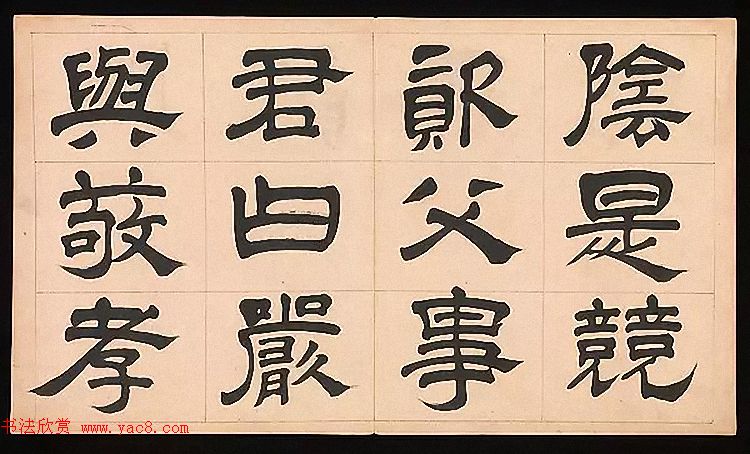 陰是競
資父事
君曰嚴
與敬孝
书法欣赏 www.yac8.com